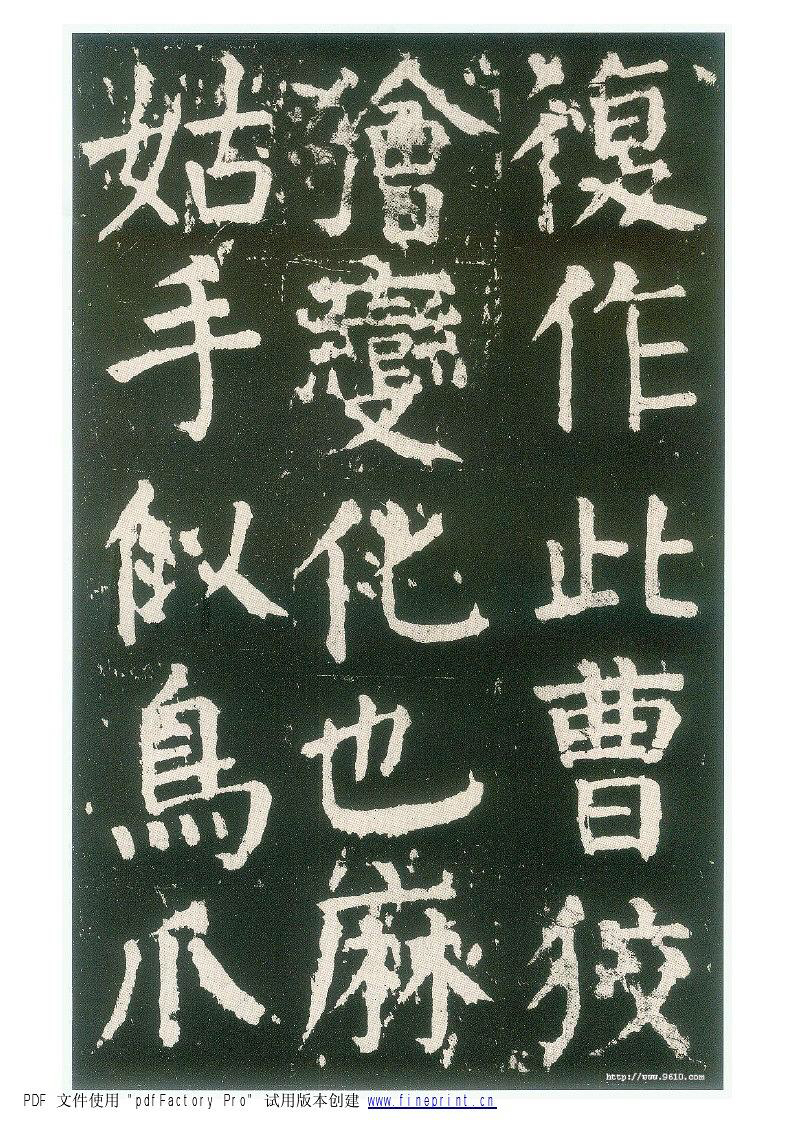 復作此曹狡
獪變化也麻
姑手似鳥爪
http://www.9610.com
PDF 文件使用 "pdfFactory Pro" 试用版本创建 www.fineprint.cn